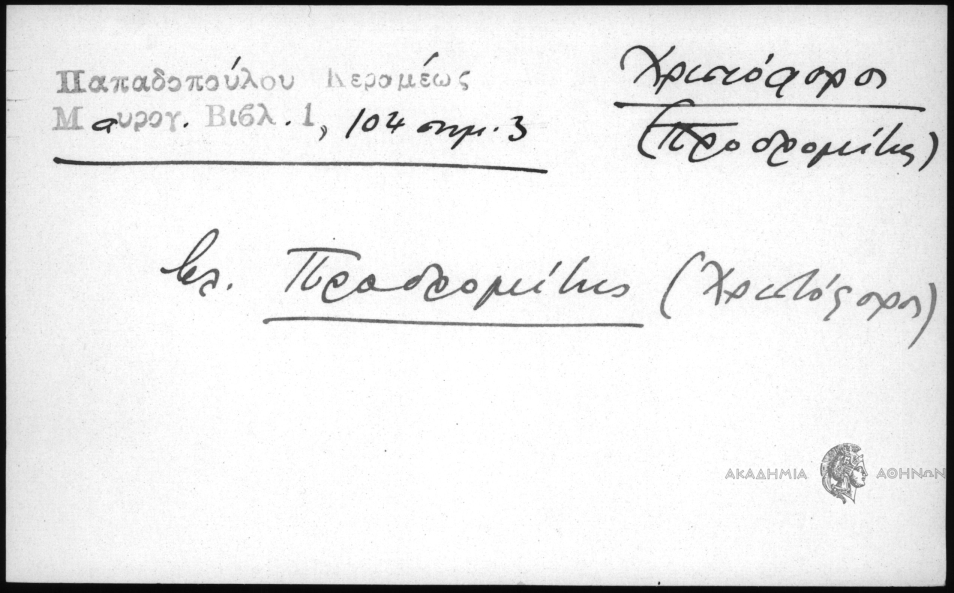 Παπαδοπούλου Κεραμέως
Μαυρογ. Βιβλ. 1, 104 σημ. 3
Χριστόφορος
(Προδρομίτης)
βλ. Προδρομίτης (Χριστόφορος)
ΑΚΑΔΗΜΙΑ ΑΘΗΝΩΝ